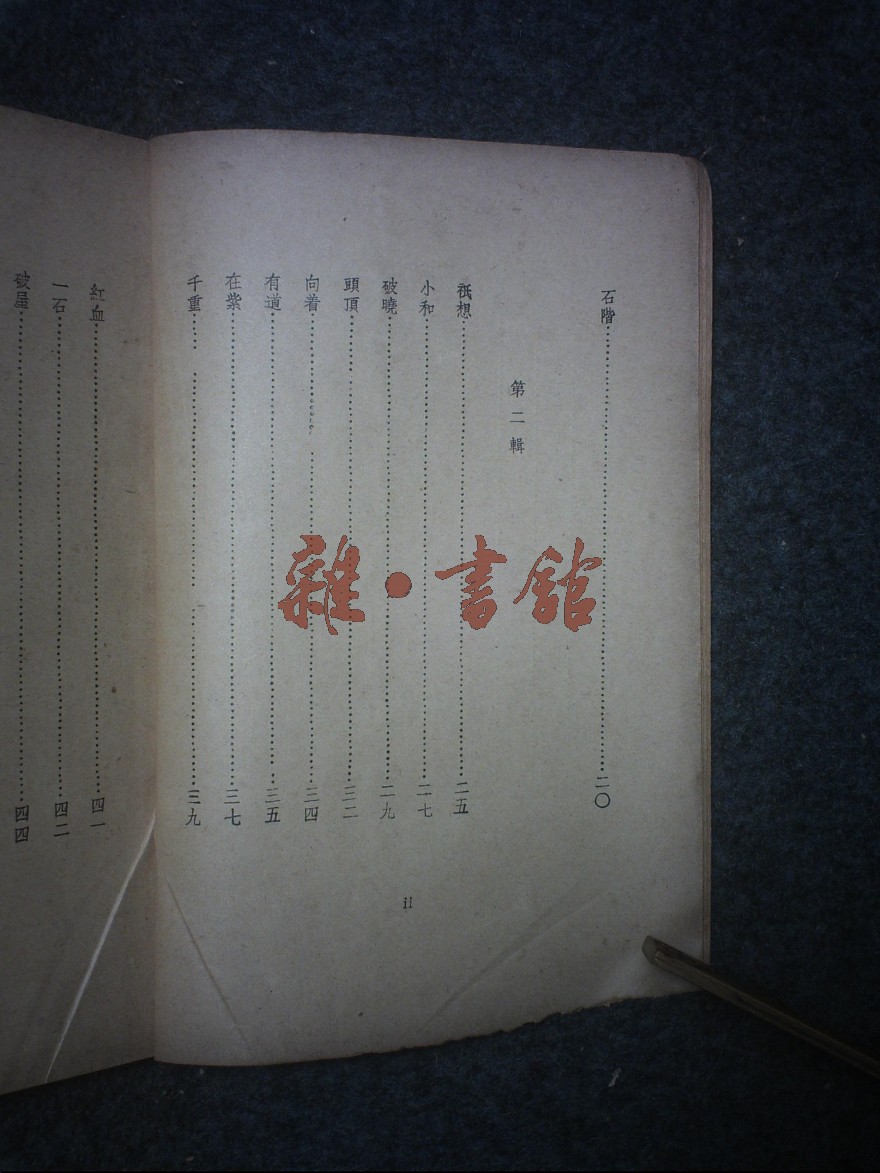 石階……二〇
第二輯
祇想……二五
小和……二七
破曉……二九
頭頂……三二
向着……三四
有道……三五
在紫……三七
千重……三九
ii
紅血……四一
一石……四二
破屋……四四
雜·書館